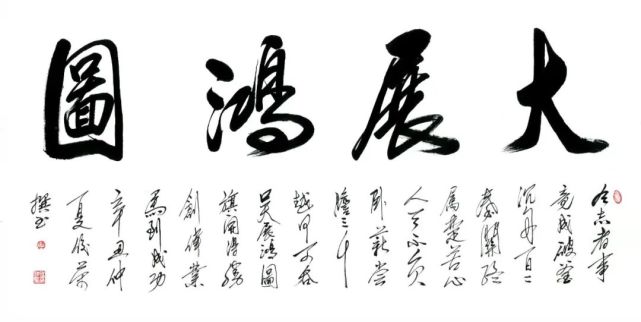 大展鴻圖
有志者事
竟成破釜
沉舟百二
秦關終
屬楚苦心
人天不負
卧薪嘗
膽三千
越甲可吞
吴大展鴻圖
旗開得勝
創偉業
馬到成功
辛丑仲
夏俊
撰書